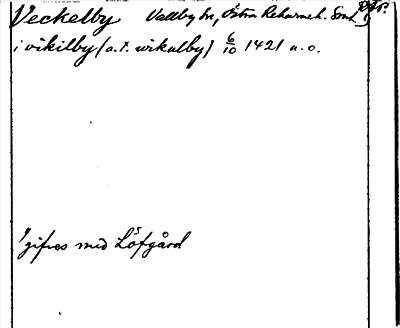 Veckelby Vallby sn, Östra Rekarne h. Sml.
i vikilby (a.t. wikulby) 6/10 1421 u.o.
gifves med Löfgård